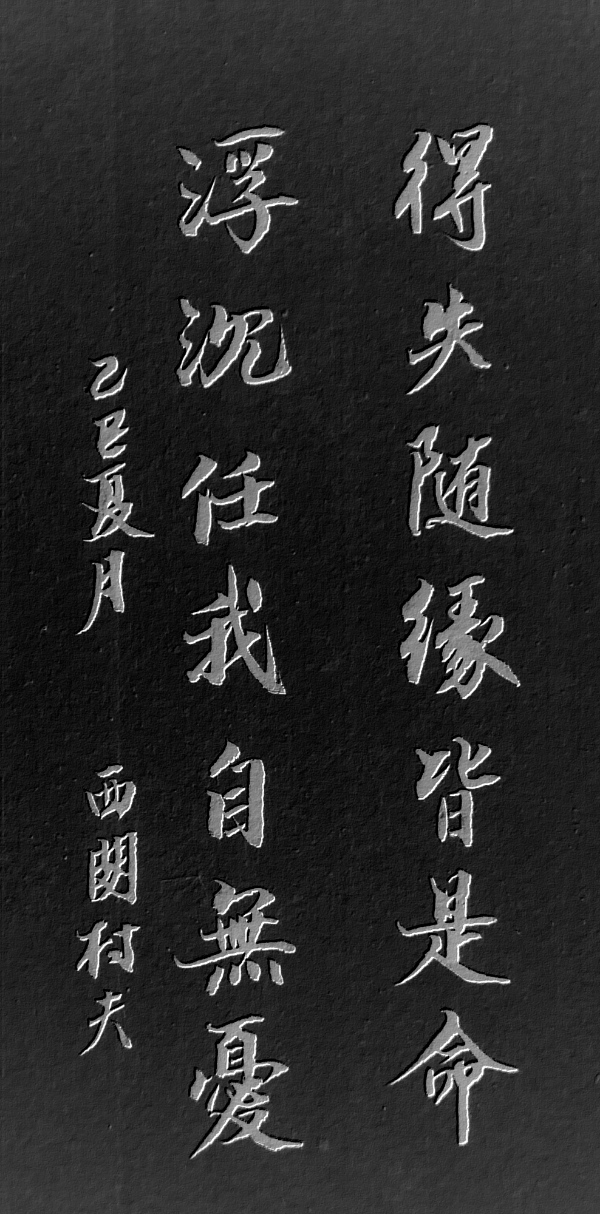 得失随緣皆是命
浮沉任我自無憂
乙巳夏月
西関村夫